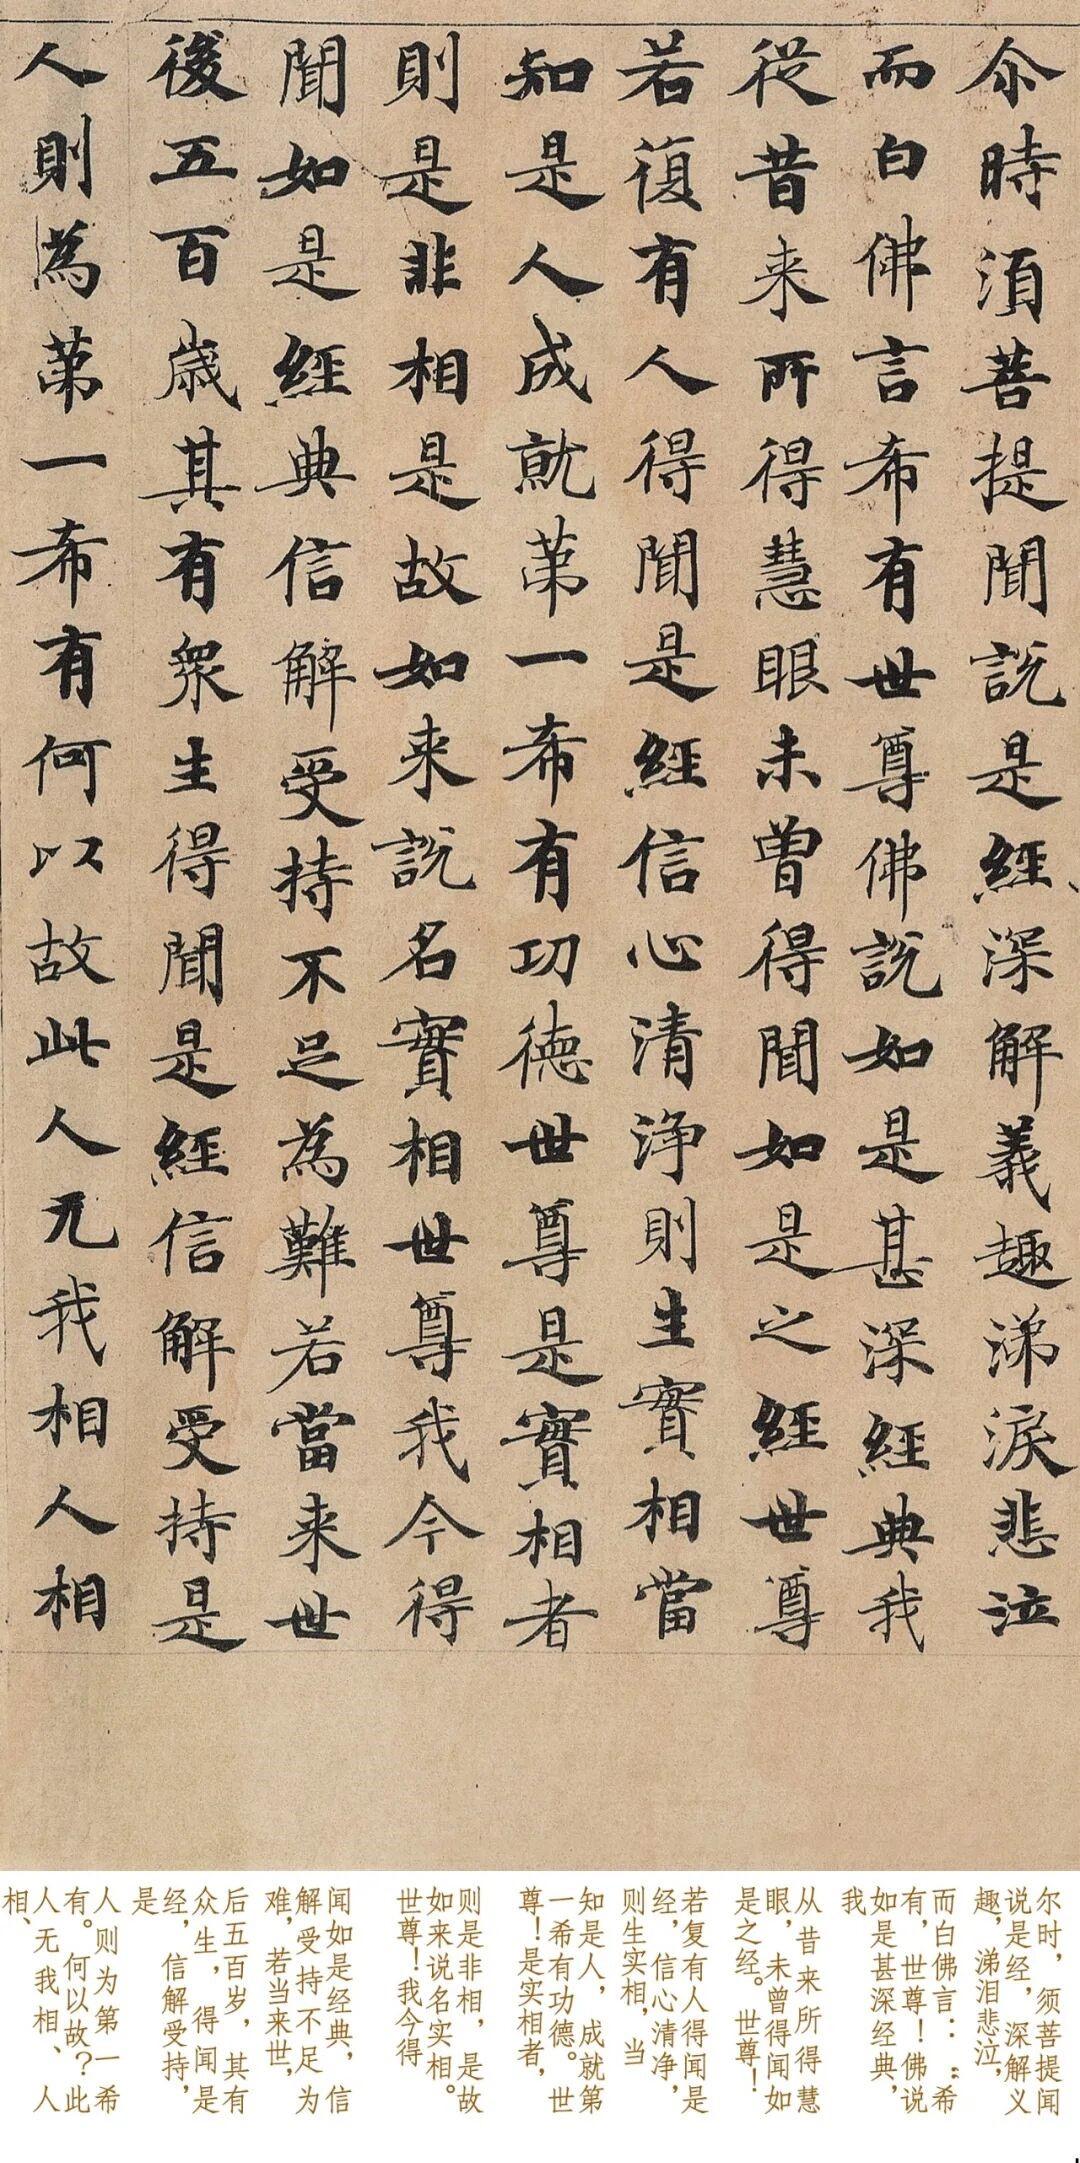 尒時須菩提聞說是經深解義趣涕淚悲泣
而白佛言希有世尊佛說如是甚深經典我
從昔来所得慧眼未曾得聞如是之經世尊
若復有人得聞是經信心清浄則生實相當
知是人成就苐一希有功德世尊是實相者
則是非相是故如来說名實相世尊我今得
聞如是經典信解受持不足為難若當来世
後五百歲其有衆生得聞是經信解受持是
人則為苐一希有何以故此人无我相人相
尔时，须菩提闻
说是经，深解义
趣，涕泪悲泣，
而白佛言：“希
有，世尊！佛说
如是甚深经典，
我
从昔来所得慧
眼，未曾得闻如
是之经。世尊！
若复有人得闻是
经，信心清净，
则生实相，当
知是人，成就第
一希有功德。世
尊！是实相者，
则是非相，是故
如来说名实相。
世尊！我今得
闻如是经典，信
解受持不足为
难，若当来世，
后五百岁，其有
众生，得闻是
经，信解受持，
是
人则为第一希
有。何以故？此
人无我相、人
相、